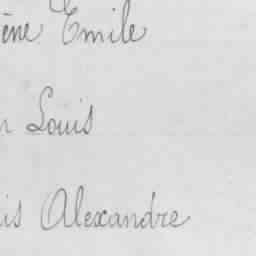 ène Emile
r Louis
is Alexandre